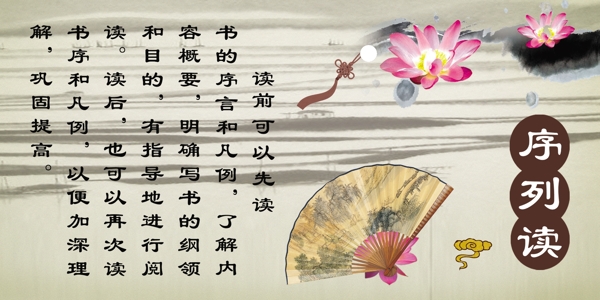 序列读
读前可以先读
书的序言和凡例，了解内
容概要，明确写书的纲领
和目的，有指导地进行阅
读。读后，也可以再次读
书序和凡例，以便加深理
解，巩固提高。